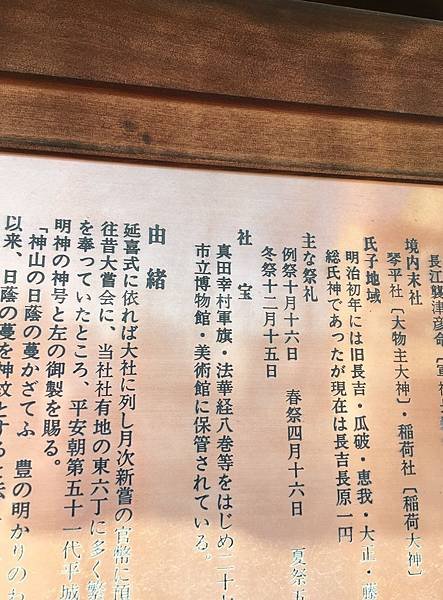 長江襲津彦命〔軍神
境内末社
琴平社〔大物主大神〕・稲荷社〔稲荷大神〕
氏子地域
明治初年には旧長吉・瓜破・恵我・大正・藤
総氏神であったが現在は長吉長原一円
主な祭礼
例祭十月十六日 春祭四月十六日 夏祭五
冬祭十二月十五日
社宝
真田幸村軍旗・法華経八巻等をはじめ二十七
市立博物館・美術館に保管されている。
由緒
延喜式に依れば大社に列し月次新嘗の官幣に預
往昔大嘗会に、当社社有地の東六丁に多く繁
を奉っていたところ、平安朝第五十一代平城
明神の神号と左の御製を賜る。
「神山の日蔭の蔓かざてふ 豊の明かりのわ
以来、日蔭の蔓を神紋とする